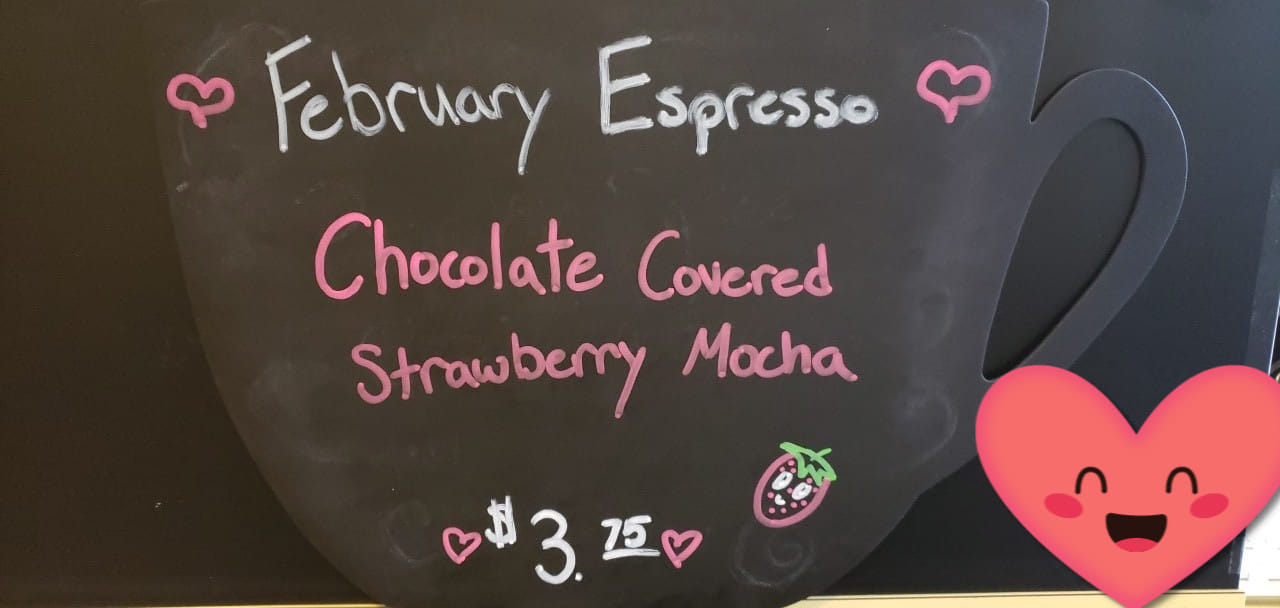 February Espresso
Chocolate Covered
Strawberry Mocha
$3.75